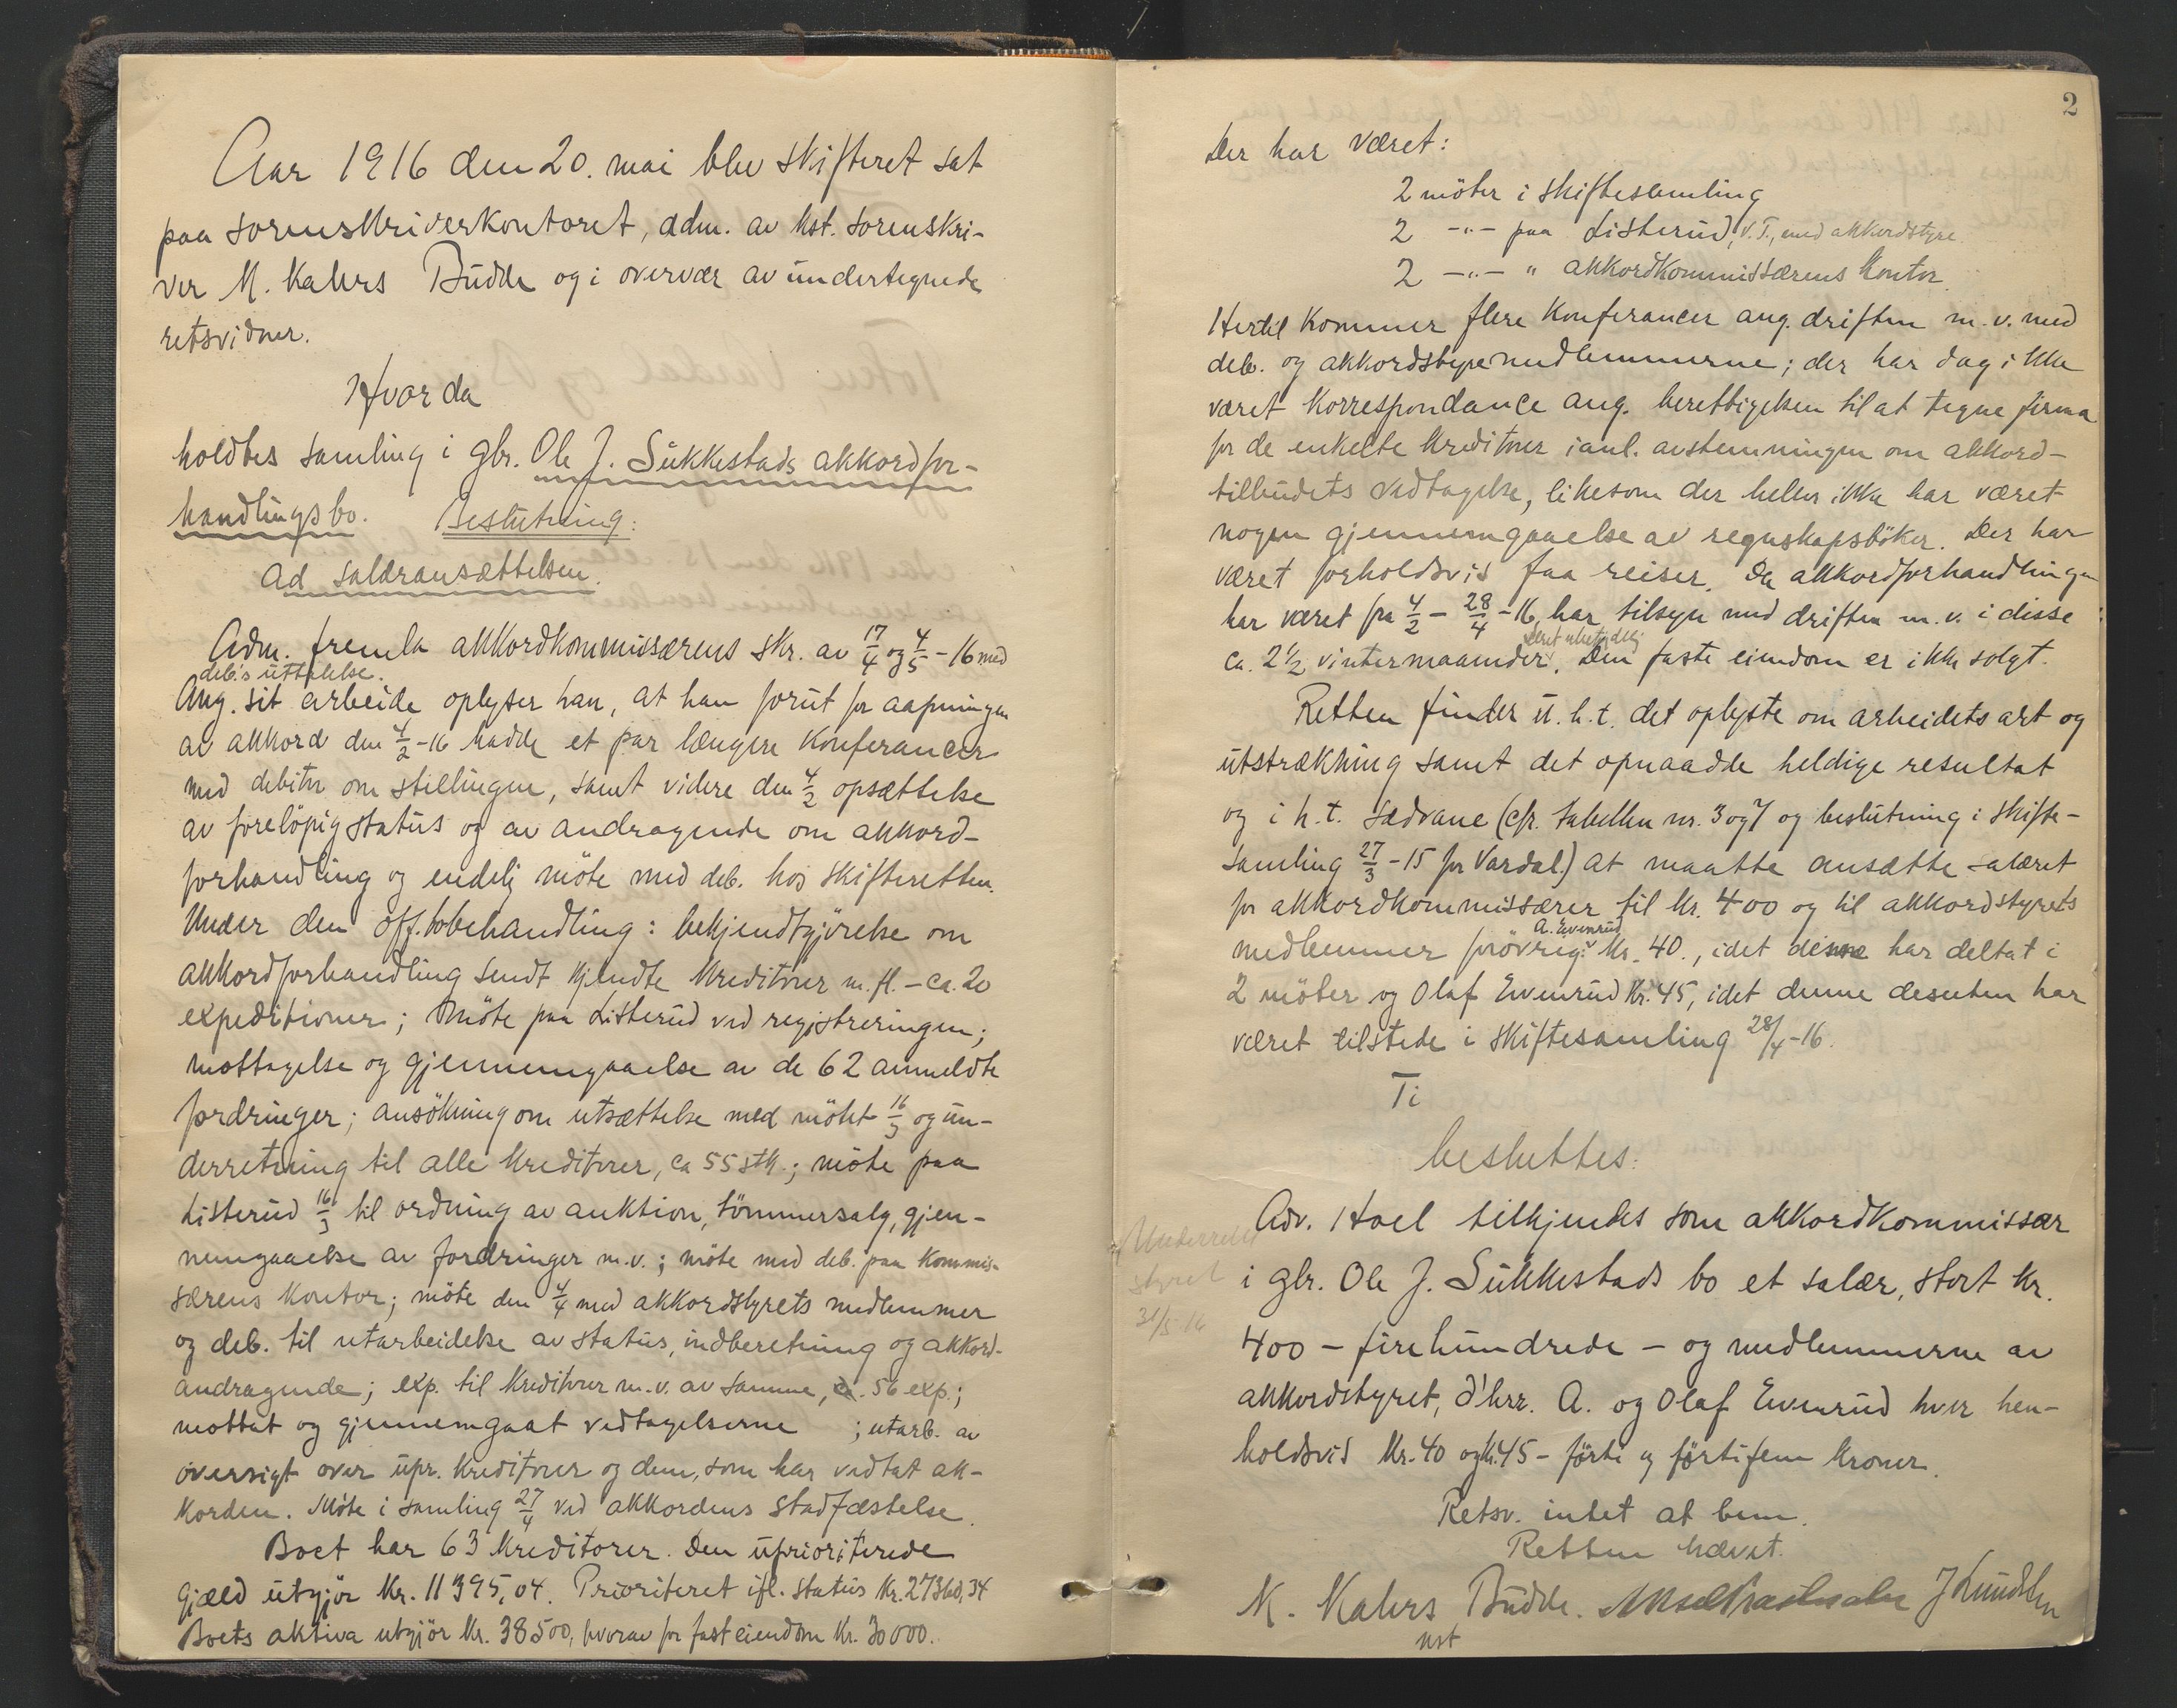 Aar 1916 den 20. mai blev skifteret sat
paa sorenskriverkontoret, adm. av kst. sorenskri-
ver M. Kahrs Budde og i overvær av undertegnede
retsvidner.
Hvor da
holdtes samling i gbr. Ole J. Sukkestads akkordfor-
handlingsbo. Beslutning:
Ad salæransættelsen.
Adm. fremla akkordkommissærens skr. av 17/4 og 4/5 - 16 med
deb's uttalelse.
Ang. sit arbeide oplyser han, at han forut for aapningen
av akkord den 4/2 -16 hadde et par længere konferancer
med debitor om stillingen, samt videre den 4/2 opsættelse
av foreløpig status og av andragende om akkord-
forhandling og endelig møte med deb. hos skifteretten.
Under den off. bobehandling: bekjendtgjørelse om
akkordforhandling sendt kjendte kreditorer m. fl. - ca. 20
expeditioner; møte paa Listerud ved registreringen;
mottagelse og gjennemgaaelse av de 62 anmeldte
fordringer; ansökning om utsættelse med møtet 16/3 og un-
derretning til alle kreditorer, ca 55 stk.; møte paa
Listerud 16/3 til ordning av auktion, tömmersalg, gjen-
nemgaaelse av fordringer m.v.; møte med deb. paa kommis-
særens kontor; møte den 4/4 med akkordstyrets medlemmer
og deb. til utarbeidelse av status, indberetning og akkord-
andragende; exp. til kreditorer m.v. av samme, ca. 56 exp.;
mottat og gjennemgaat vedtagelserne ; utarb. av
oversigt over upr. kreditorer og dem, som har vedtat ak-
korden. Møte i samling 27/4 ved akkordens stadfæstelse.
Boet har 63 kreditorer. Den uprioriterede
gjæld utgjör kr. 11395,04. Prioriteret ifl. status kr. 27360,34
Boets aktiva utgjör kr. 38500, hvorav for fast eiendom kr. 30000.
2
Der har været:
2 möter i skiftesamling
2 -"- paa Listerud, V. T., med akkordstyre
2 -"- " akkordkommissærens kontor.
Hertil kommer flere konferancer ang. driften m.v. med
deb. og akkordstyremedlemmerne; der har dog ikke
været korrespondance ang. berettigelsen til at tegne firma
for de enkelte kreditorer i anl. avstemningen om akkord-
tilbudets vedtagelse, likesom der heller ikke har været
nogen gjennemgaaelse av regnskapsböker. Der har
været forholdsvis faa reiser. Da akkordforhandlingen
har været fra 4/2 - 28/4 -16, har tilsyn med driften m.v. i disse
været ubetydelig
ca. 2 1/2 vintermaaneder. Den faste eiendom er ikke solgt.
Retten finder u. h. t. det oplyste om arbeidets art og
utstrækning samt det opnaadde heldige resultat
og i h. t. sædvane (cfr. tabellen nr. 3 og 7 og beslutning i skifte-
samling 27/3 -15 for Vardal.) at maatte ansætte salæret
for akkordkommissærer til kr. 400 og til akkordstyrets
A. Evenrud
medlemmer forøvrig kr. 40., idet denne har deltat i
2 möter og Olaf Evenrud kr. 45, idet denne desuten har
været tilstede i skiftesamling 28/4 -16.
Ti
besluttes:
Adv. Hoel tilkjendes som akkordkommissær
i gbr. Ole J. Sukkestads bo et salær, stort kr.
400 - firehundrede - og medlemmerne av
akkordstyret, d'hrr. A. og Olaf Evenrud hver hen-
holdsvis kr. 40 og kr. 45 - förti og förtifem kroner.
Underrettet
styret
31/5 16
Retsv. intet at bem.
Retten hævet.
M. Kahrs Budde. J Lundby
kst